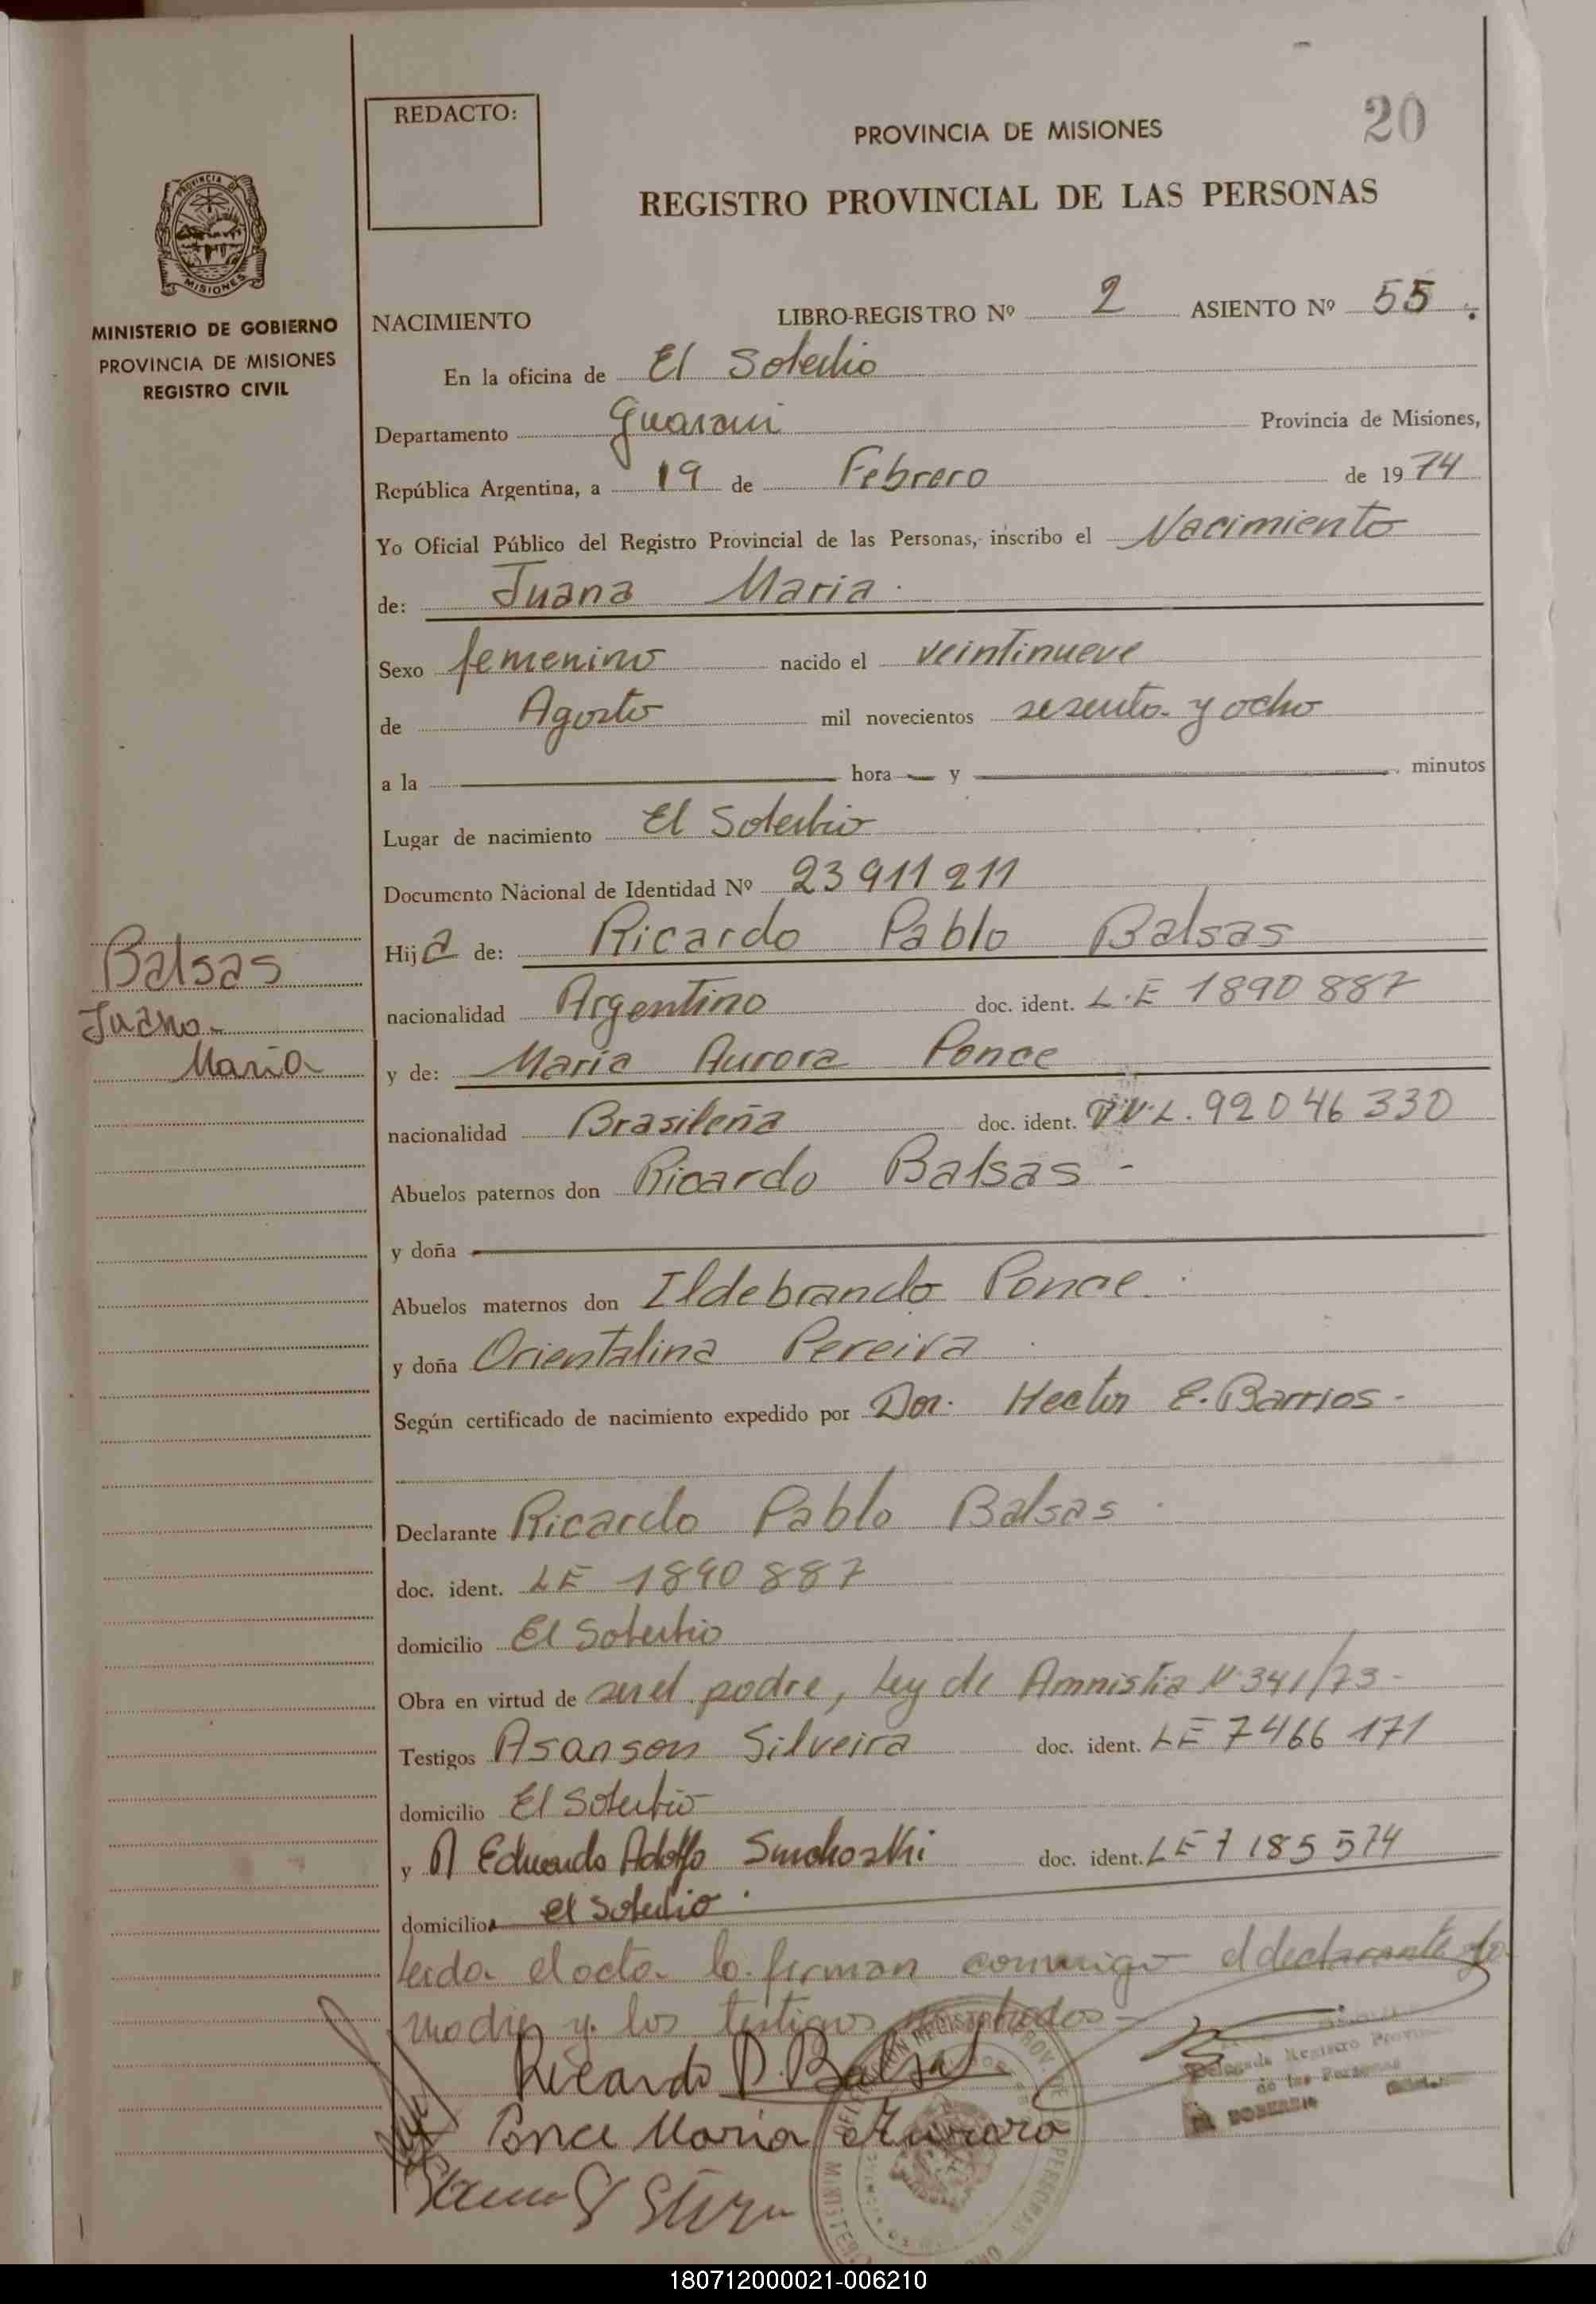 REDACTO:
20
PROVINCIA DE MISIONES
REGISTRO PROVINCIAL DE LAS PERSONAS
PROVINCIA DE
MISIONES
MINISTERIO DE GOBIERNO
PROVINCIA DE MISIONES
REGISTRO CIVIL
NACIMIENTO LIBRO-REGISTRO Nº 2 ASIENTO Nº 55.
En la oficina de El Soberbio
Departamento Guarani Provincia de Misiones,
República Argentina, a 19 de Febrero de 1974
Yo Oficial Público del Registro Provincial de las Personas, inscribo el Nacimiento
de: Juana Maria
Sexo femenino nacido el veintinueve
de Agosto mil novecientos sesenta y ocho
a la hora y minutos
Lugar de nacimiento El Soberbio
Documento Nacional de Identidad Nº 23911211
Hija de: Ricardo Pablo Balsas
nacionalidad Argentino doc. ident. L.E 1890887
Balsas
Juana
Maria
y de: Maria Aurora Ponce
nacionalidad Brasileña doc. ident. 92046330
Abuelos paternos don Ricardo Balsas -
y doña
Abuelos maternos don Ildebrando Ponce
y doña Orientalina Pereira
Según certificado de nacimiento expedido por Hector E. Barrios -
Declarante Ricardo Pablo Balsas
doc. ident. LE 1890887
domicilio El Soberbio
Obra en virtud de ser el padre, Ley de Amnistia Nº 341/73 -
Testigos Asanson Silveira doc. ident. LE 7466171
domicilio El Soberbio
y Eduardo Adolfo doc. ident. LE 7185574
domicilio el Soberbio
leida el acta la firman conmigo el declarante la
madre y los testigos
Ricardo P. Balsas
Ponce Maria Aurora
Delegada Registro Provincial
de las Personas
EL SOBERBIO
180712000021-006210